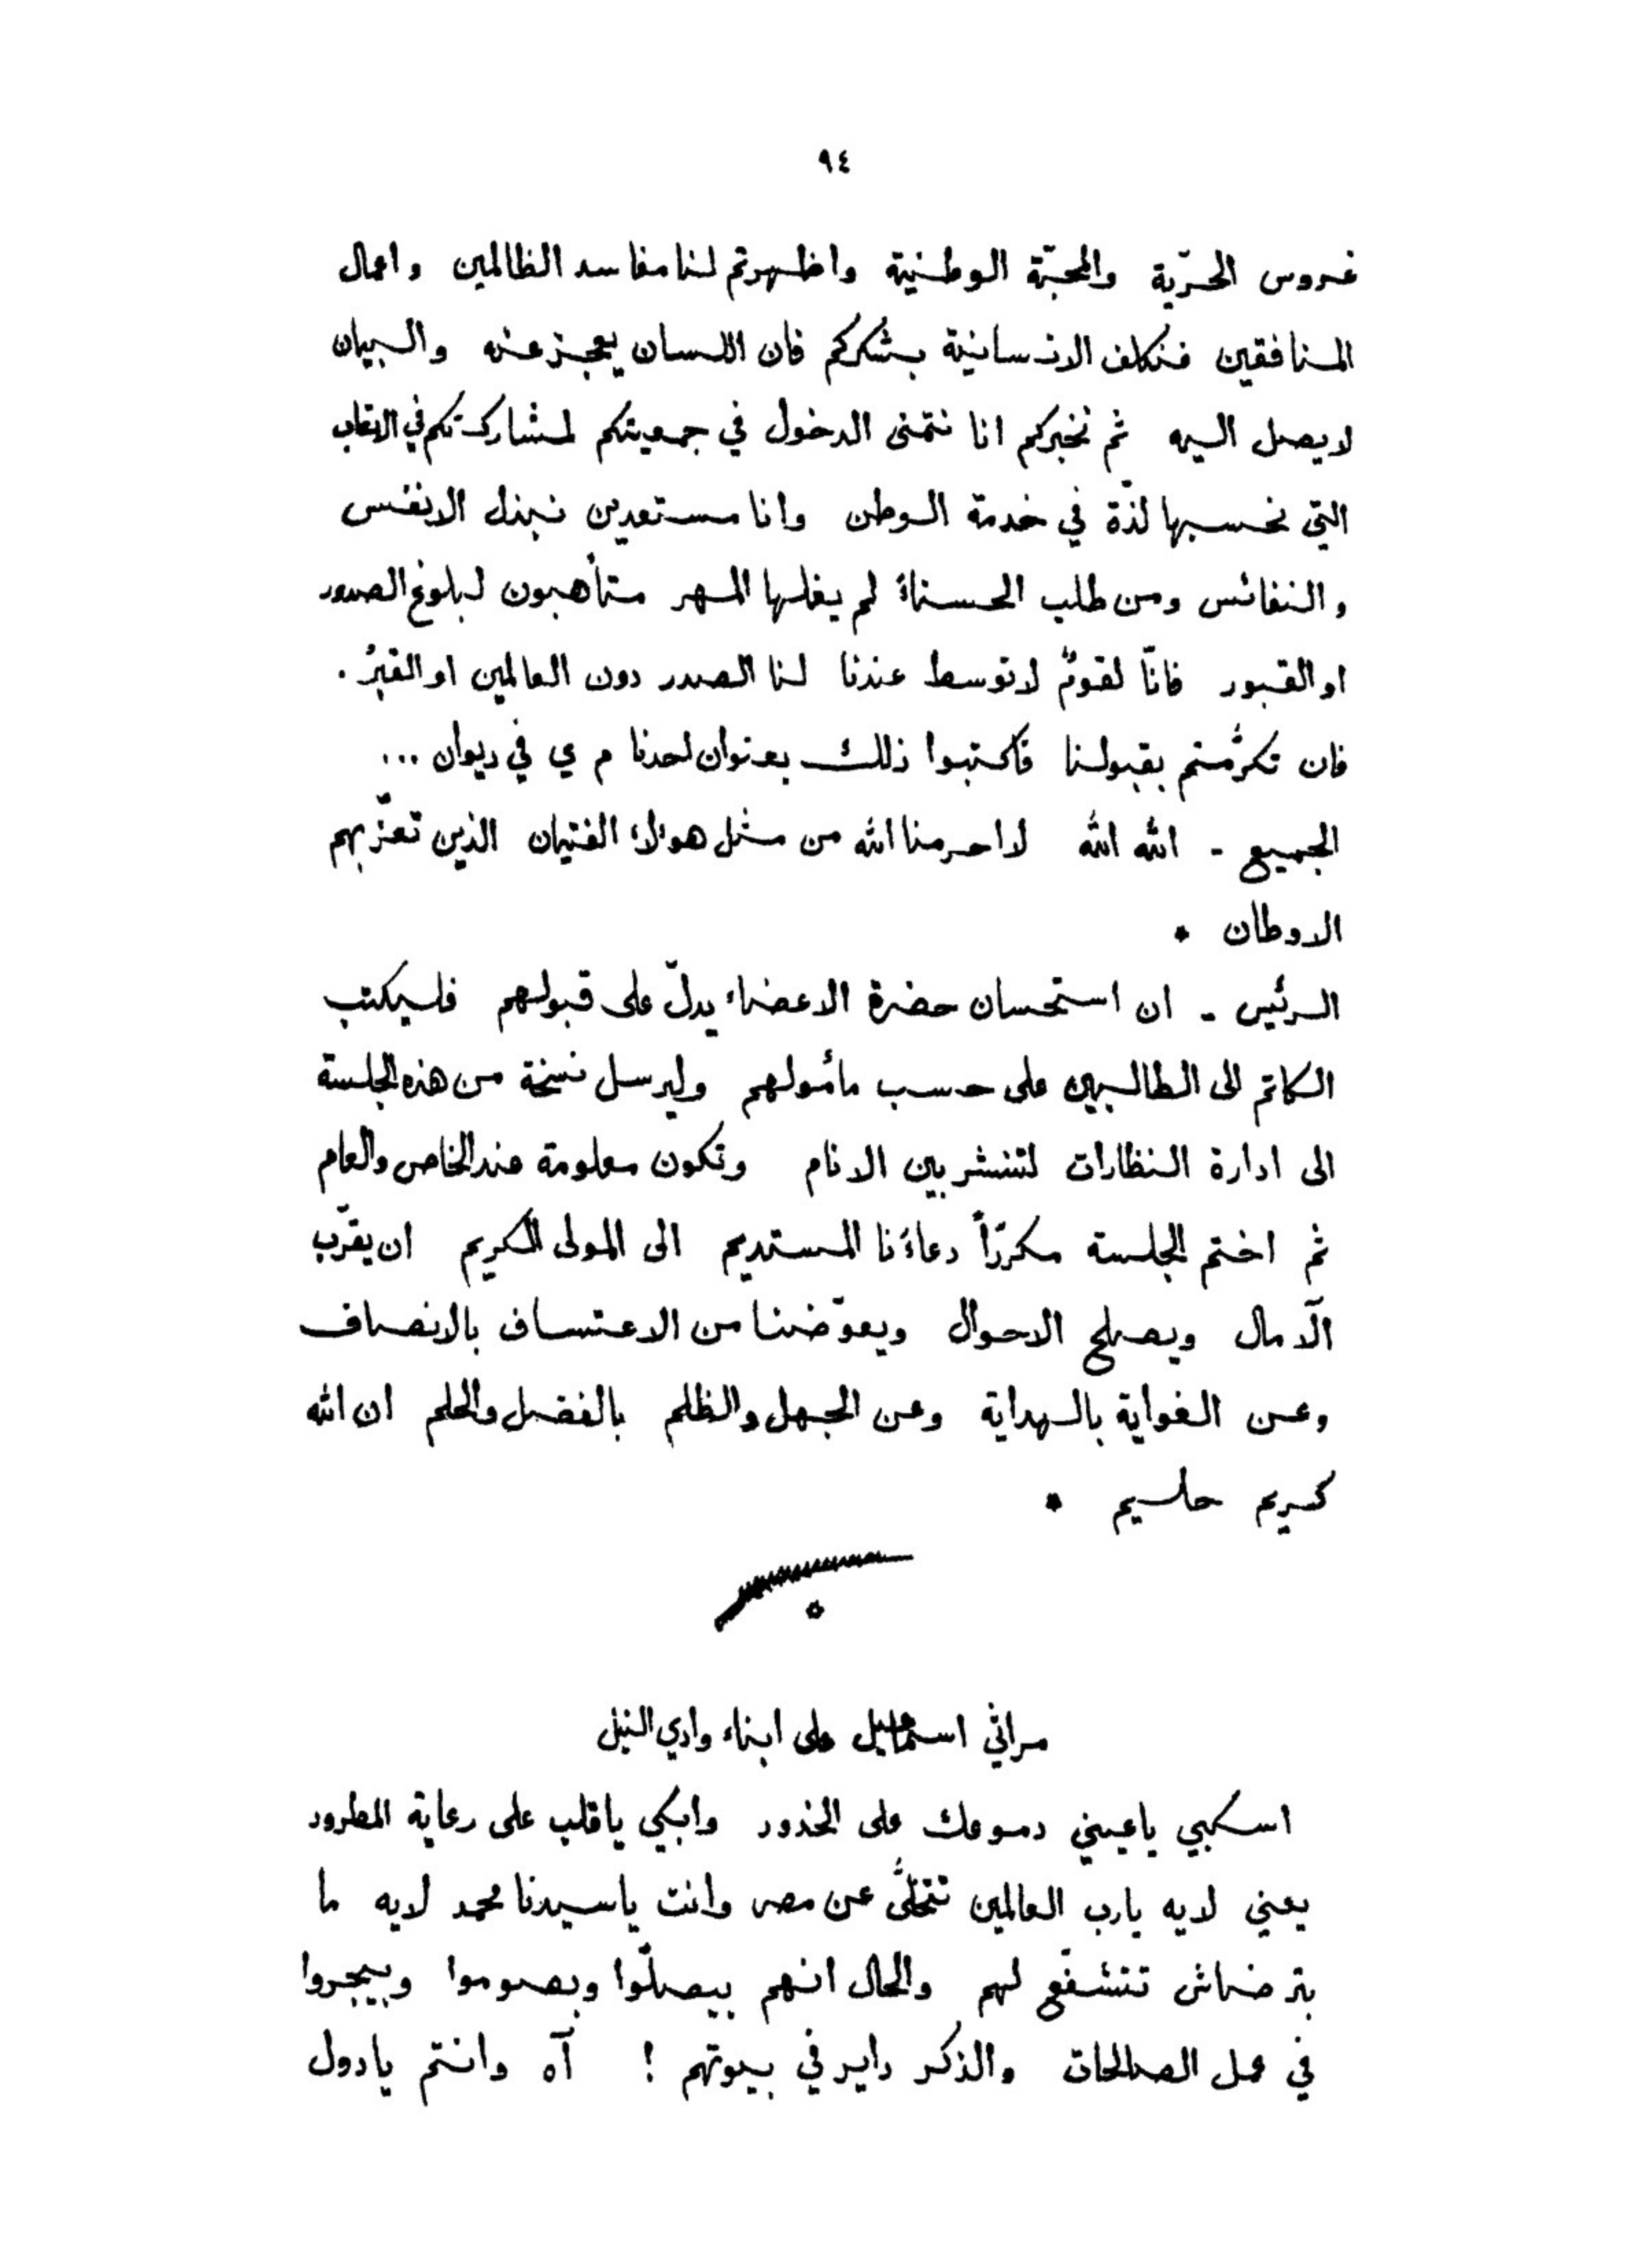 ٩٤
غروس الحرّية والمحبّة الوطنية واظهرتم لنا مفاسد الظالمين واعمال
المنافقين فتكلف الانسانية بشكركم فان اللسان يعجز عنه والبيان
لا يصل اليه ثم نخبركم انا نتمنى الدخول في جمعيتكم لمشاركتكم في اتعاب
التي نحسبها لذّة في خدمة الوطن وانا مستعدين نبذل الانفس
والنفائس ومن طلب الحسناءَ لم يغلها المهر متأهبون لبلوغ الصدور
او القبور فانّا لقومٌ لا توسط عندنا لنا الصدر دون العالمين او القبرُ .
فان تكرّمتم بقبولنا فاكتبوا ذلك بعنوان احدنا م ي في ديوان ...
الجميع - الله الله لا احرمنا الله من مثل هولاءِ الفتيان الذين تعزّ بهم
الاوطان *
الرئيس - ان استحسان حضرة الاعضاء يدلّ على قبولهم فليكتب
الكاتم الى الطالبين على حسب مأمولهم وليرسل نسخة من هذه الجلسة
الى ادارة النظارات لتنشر بين الانام وتكون معلومة عند الخاص والعام
ثم اختم الجلسة مكرّراً دعاءَنا المستديم الى المولى الكريم ان يقرّب
الآمال ويصلح الاحوال ويعوّضنا من الاعتساف بالانصاف
وعن الغواية بالهداية وعن الجهل والظلم بالفضل والحلم ان الله
كريم حليم *
مراثي اسماعيل على ابناء وادي النيل
اسكبي يا عيني دموعك على الخدود وابكي يا قلب على رعاية المطرود
يعني لايه يارب العالمين تتخلَّى عن مصر وانت يا سيدنا محمد لايه ما
بترضاش تتشفّع لهم والحال انهم بيصلّوا وبصوموا وبيجروا
في عمل الصالحات والذكر داير في بيوتهم ! آه وانتم يا دول